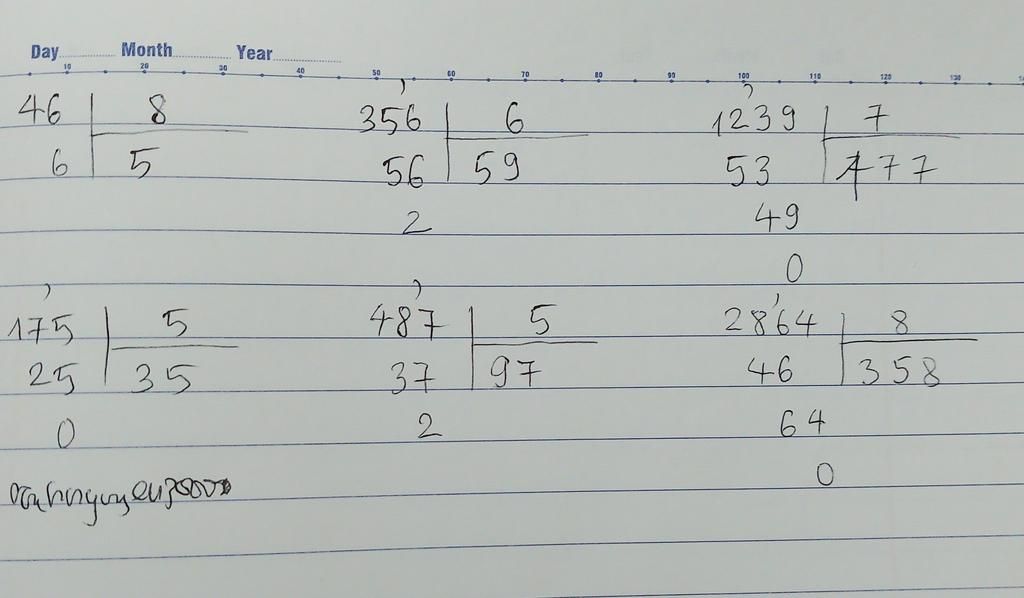 Day Month Year
10 20 30 40 50 60 70 80 90 100 110 120 130
46 8 356 6 1239 7
6 5 56 59 53 177
2 49
0
175 5 487 5 2864 8
25 35 37 97 46 358
0 2 64
0